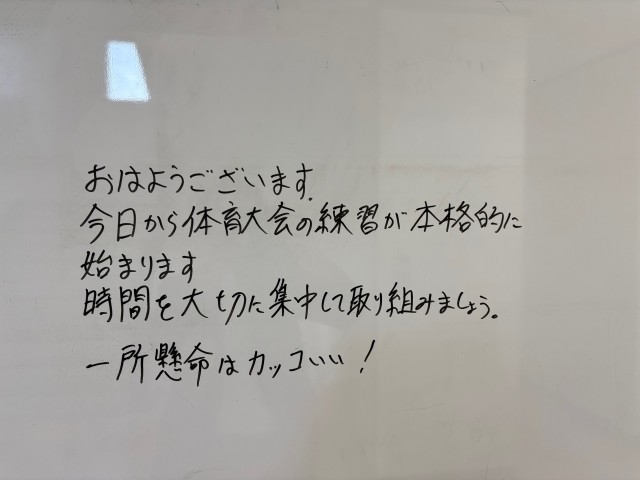 おはようございます.
今日から体育大会の練習が本格的に
始まります
時間を大切に集中して取り組みましょう。
一所懸命はカッコいい!